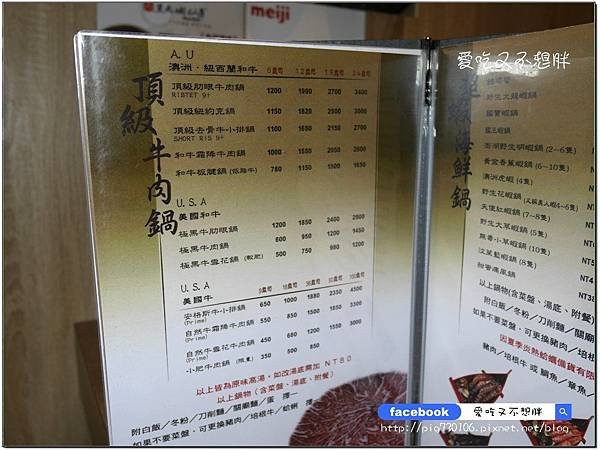 meiji
愛吃又不想胖
頂級牛肉鍋
A. U
澳洲．紐西蘭和牛 6盎司 12盎司 18盎司 24盎司
頂級肋眼牛肉鍋 1200 1900 2700 3400
RIBTET 9+
頂級紐約克鍋 1150 1820 2500 3000
頂級去骨牛小排鍋 1100 1650 2150 2700
SHORT RIS 9+
和牛霜降牛肉鍋 1000 1550 2050 2600
和牛板腱鍋 780 1150 1500 1650
U. S. A
美國和牛
極黑牛肋眼鍋 1200 1850 2400 2900
極黑牛肉鍋 600 950 1200 1450
極黑牛雪花鍋 500 750 980 1200
U. S. A
美國牛 9盎司 18盎司 36盎司 50盎司 100盎司
安格斯牛小排鍋 650 1000 1880 2350 4500
(Prime)
自然牛霜降牛肉鍋 550 850 1500
(Prime)
自然牛雪花牛肉鍋 450 680
(Prime)
小肥牛肉鍋 (限量) 350 500
以上皆為原味高湯，如改湯底需加 NT80
以上鍋物(含菜盤、湯底、附餐)
附白飯／冬粉／刀削麵／關廟麵／蛋 擇一
如果不要菜盤，可更換豬肉／培根牛／蛤蜊 擇
海鮮鍋
野生大蝦鍋
國寶蝦鍋
國王蝦鍋
澎湖野生明蝦鍋 (2~6隻)
黃金香蕉蝦鍋 (6~10隻)
澳洲虎蝦 (4隻)
野生花蝦鍋
天使紅蝦鍋 (7~8隻)
野生大草蝦鍋 (5隻)
無毒小草蝦鍋 (10隻)
汶萊藍蝦鍋 (8隻)
以上鍋物(含菜盤、湯底、附餐)
附白飯／冬粉／刀削麵／關廟
如果不要菜盤，可更換豬肉／培根
因夏季炎熱蛤蠣備貨有限
豬肉／培根牛 或 鯛魚／章魚／
facebook 愛吃又不想胖
http://pig730106.pixnet.net/blog